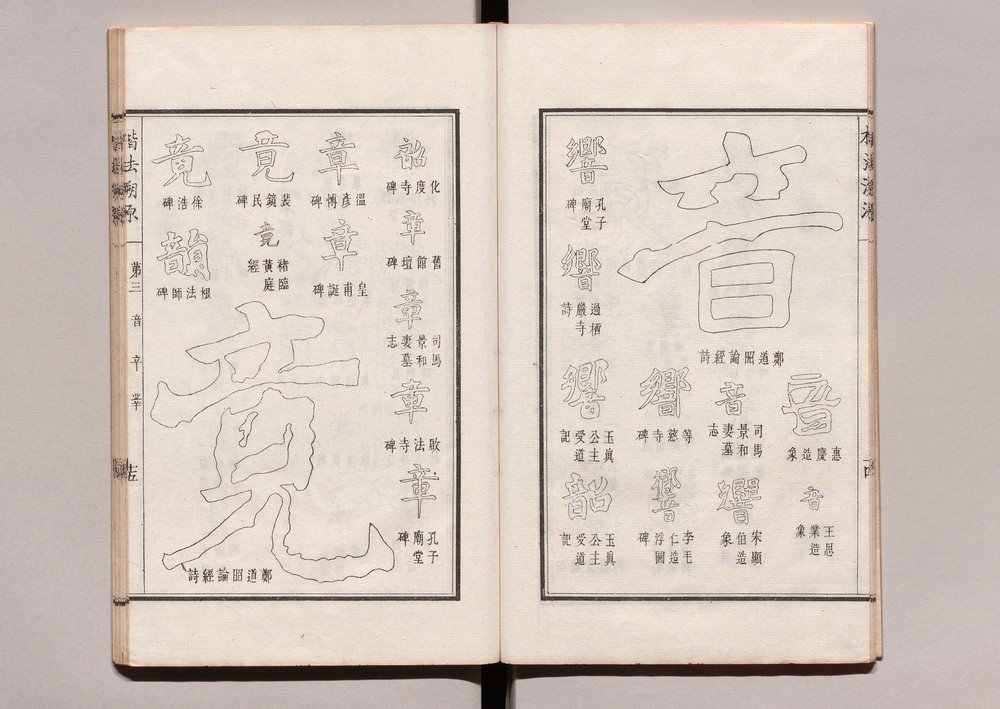 音
鄭道昭論經詩
音
惠慶造象
音
王恩業造象
音
司馬景和妻墓志
響
宋顯伯造象
響
等慈寺碑
響
李毛仁造浮圖
響
孔子廟堂碑
響
過栖嚴寺詩
響
玉真公主受道記
韶
玉真公主受道記
韶
化度寺碑
章
舊館壇碑
章
司馬景和妻墓志
章
啟法寺碑
章
孔子廟堂碑
章
溫彥博碑
章
皇甫誕碑
竟
裴鏡民碑
竟
褚臨黃庭經
竟
徐浩碑
韻
根法師碑
竟
鄭道昭論經詩
楷法溯源
第三
音
辛
丵